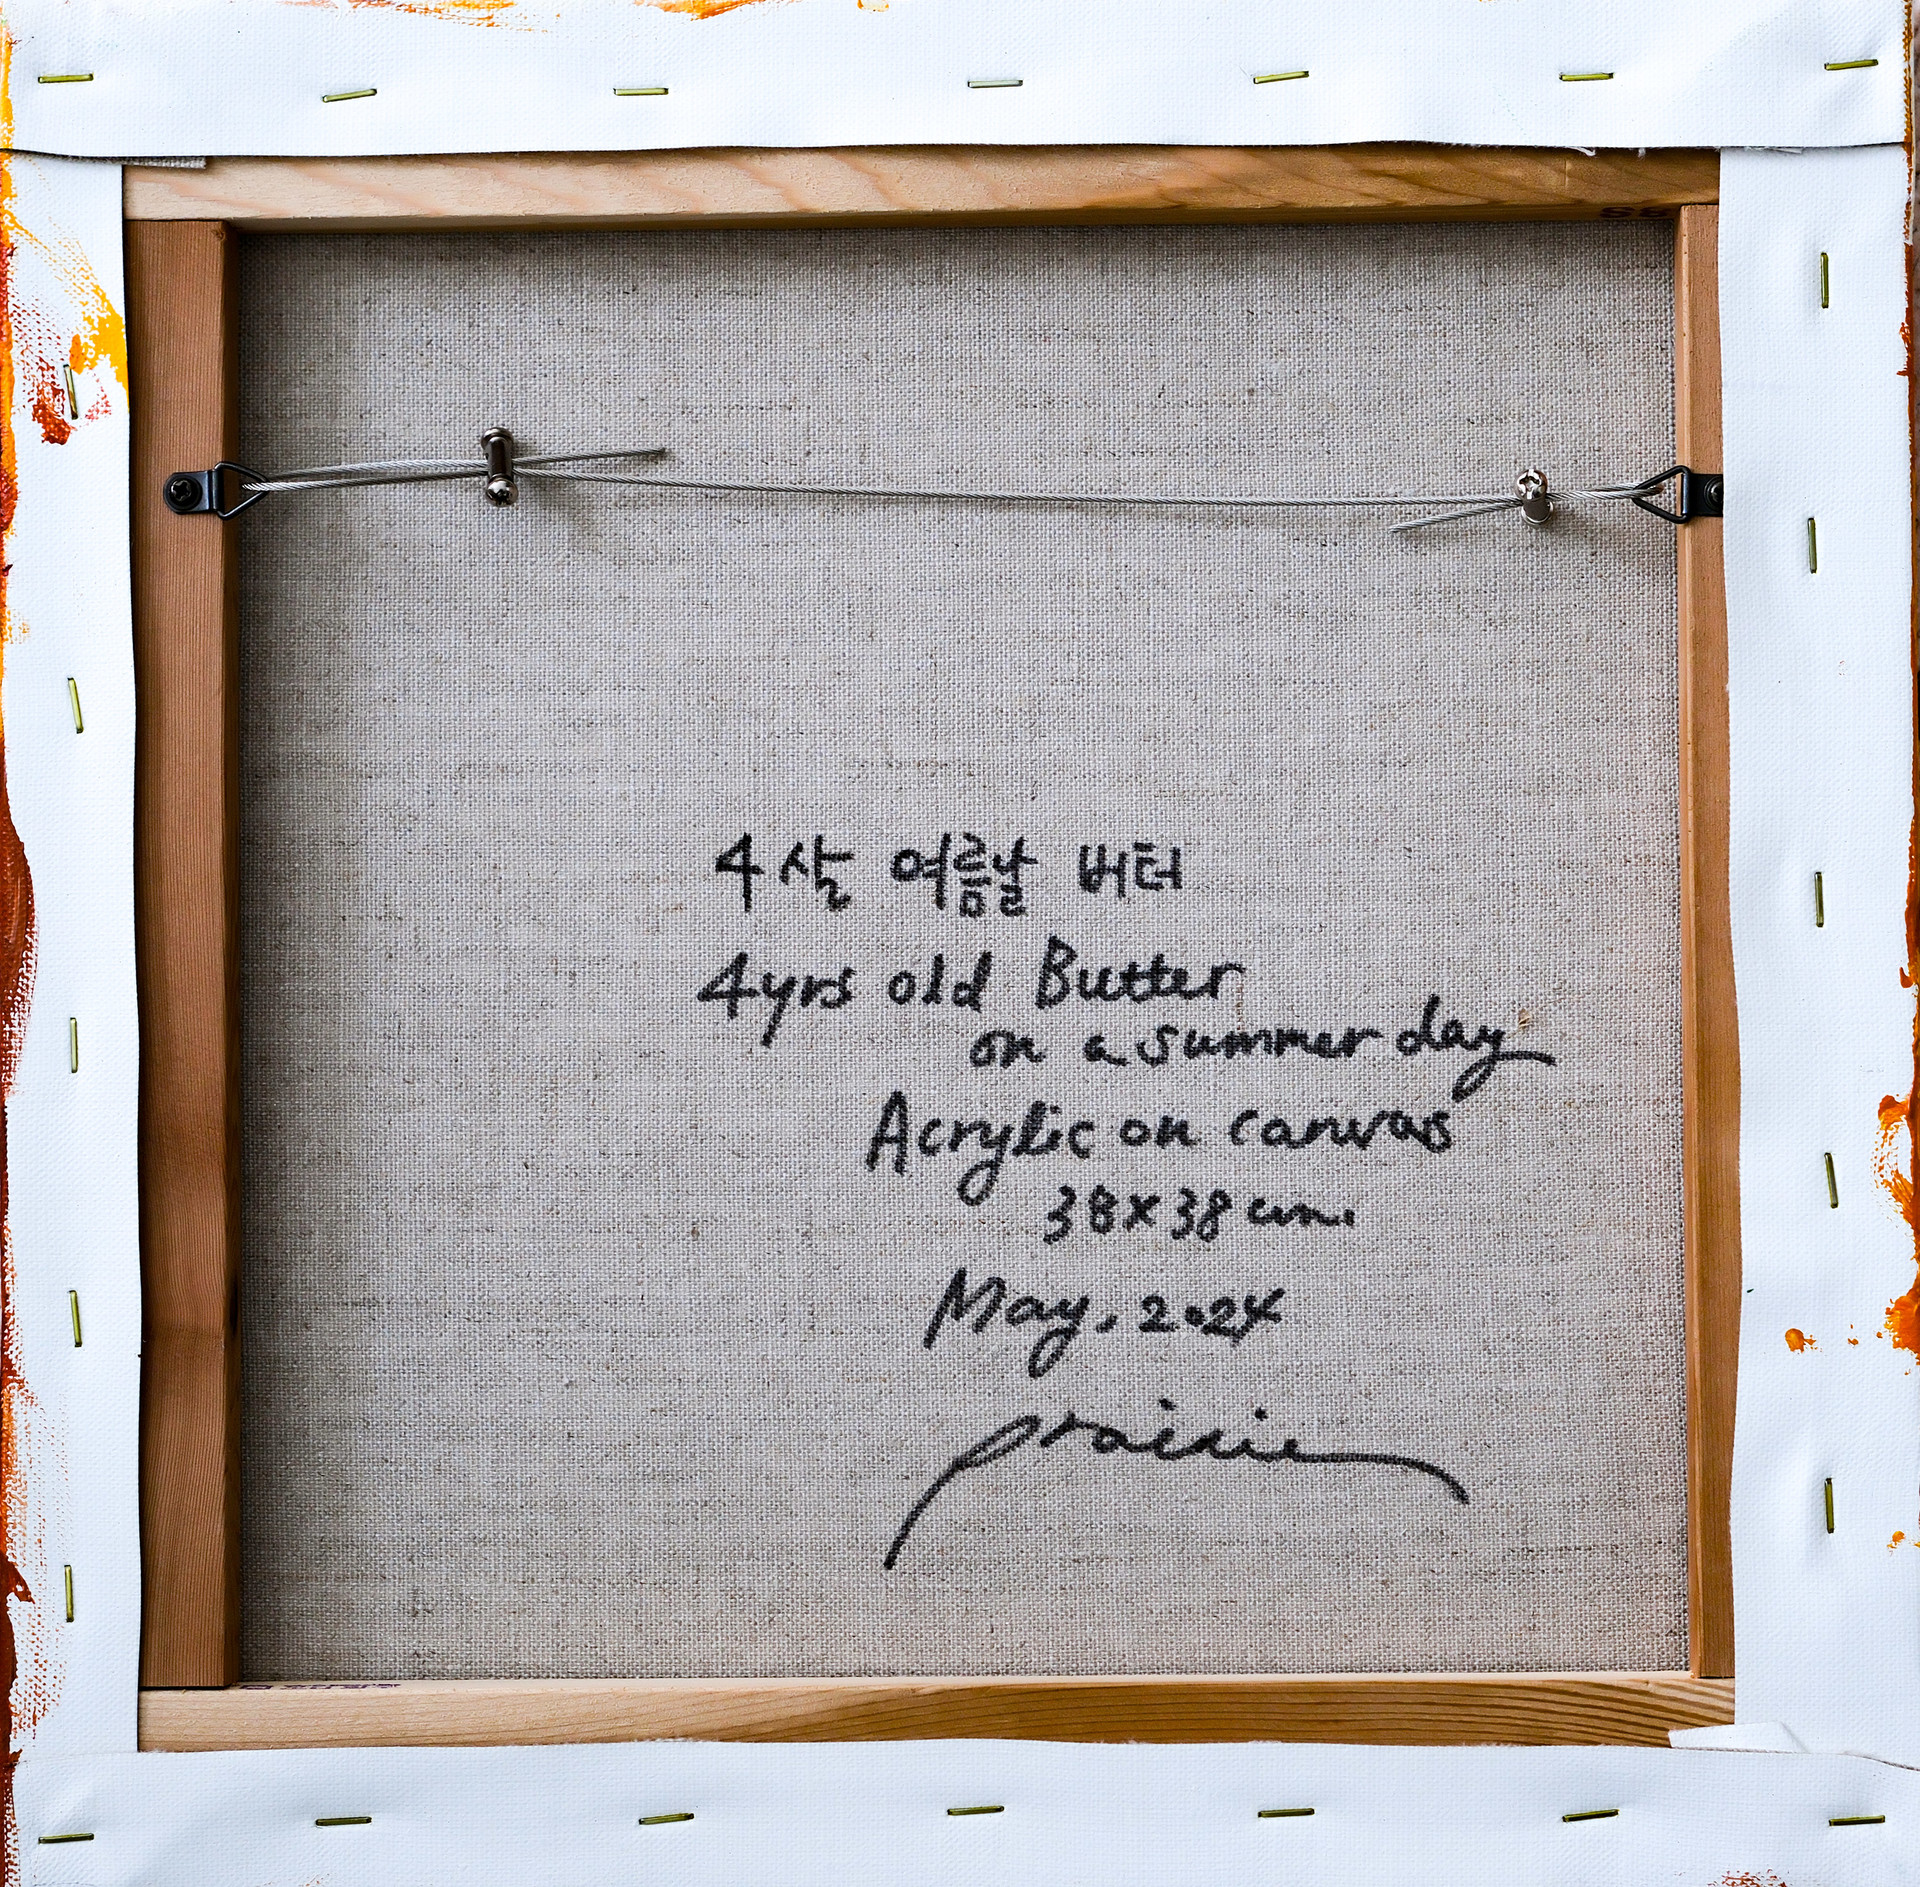 4살 여름날 버터
4yrs old Butter
on a summer day
Acrylic on canvas
38×38 cm.
May. 2024
prairie